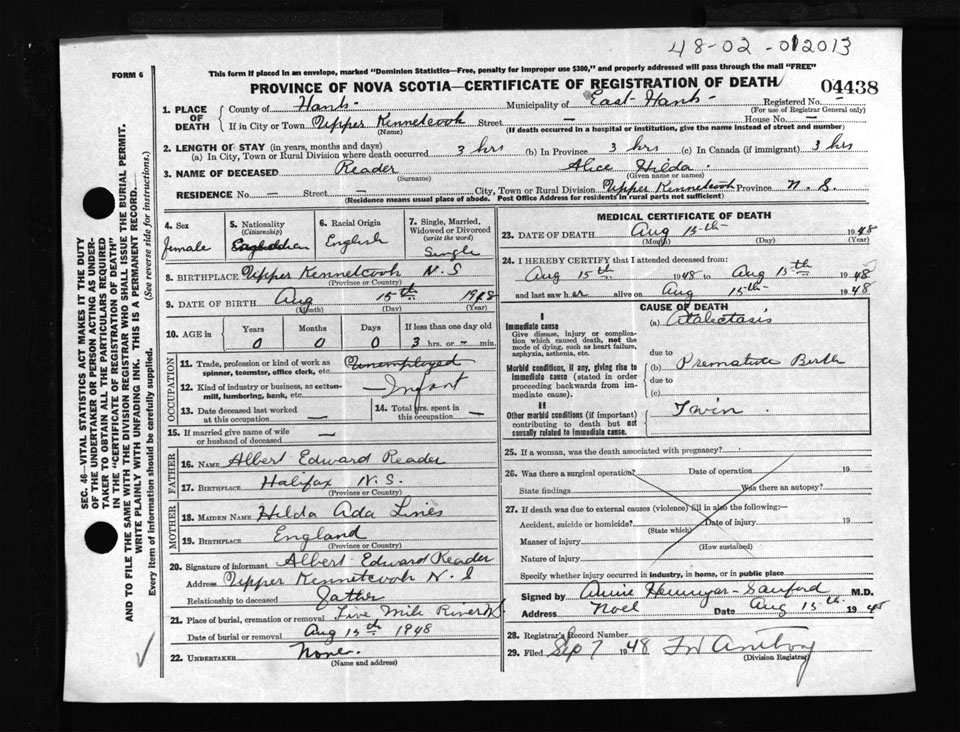 48-02-012013
FORM 6
This form if placed in an envelope, marked "Dominion Statistics—Free, penalty for improper use $300," and properly addressed will pass through the mail "FREE"
PROVINCE OF NOVA SCOTIA—CERTIFICATE OF REGISTRATION OF DEATH
04438
1. PLACE OF DEATH
County of Hants- Municipality of East-Hants- Registered No. -
(For use of Registrar General only)
If in City or Town Upper Kennetcook Street — House No. —
(Name) (If death occurred in a hospital or institution, give the name instead of street and number)
2. LENGTH OF STAY (in years, months and days)
(a) In City, Town or Rural Division where death occurred 3 hrs (b) In Province 3 hrs (c) In Canada (if immigrant) 3 hrs
3. NAME OF DECEASED Reader Alice Hilda
(Surname) (Given name or names)
RESIDENCE No. — Street — City, Town or Rural Division Upper Kennetcook Province N. S.
(Residence means usual place of abode. Post Office Address for residents in rural parts not sufficient)
4. Sex
female
5. Nationality
(Citizenship)
6. Racial Origin
English
7. Single, Married, Widowed or Divorced
(write the word)
Single
8. BIRTHPLACE Upper Kennetcook N. S
(Province or Country)
9. DATE OF BIRTH Aug 15th 1948
(Month) (Day) (Year)
10. AGE in
Years Months Days If less than one day old
0 0 0 3 hrs. or — min.
OCCUPATION
11. Trade, profession or kind of work as spinner, teamster, office clerk, etc. Unemployed
12. Kind of industry or business, as cotton-mill, lumbering, bank, etc. Infant
13. Date deceased last worked at this occupation —
14. Total yrs. spent in this occupation —
15. If married give name of wife or husband of deceased —
FATHER
16. NAME Albert Edward Reader
17. BIRTHPLACE Halifax N. S.
(Province or Country)
MOTHER
18. MAIDEN NAME Hilda Ada Lines
19. BIRTHPLACE England
(Province or Country)
20. Signature of informant Albert Edward Reader
Address Upper Kennetcook N. S
Relationship to deceased father
21. Place of burial, cremation or removal Five Mile River N.S.
Date of burial or removal Aug 15th 1948
22. UNDERTAKER None.
(Name and address)
MEDICAL CERTIFICATE OF DEATH
23. DATE OF DEATH Aug 15-th- 1948
(Month) (Day) (Year)
24. I HEREBY CERTIFY that I attended deceased from:
Aug 15th 1948 to Aug 15th 1948
and last saw her alive on Aug 15-th- 1948
CAUSE OF DEATH
I
Immediate cause
Give disease, injury or complication which caused death, not the mode of dying, such as heart failure, asphyxia, asthenia, etc.
(a) Atalectasis
due to
Morbid conditions, if any, giving rise to immediate cause (stated in order proceeding backwards from immediate cause).
(b) Premature Birth
due to
(c)
II
Other morbid conditions (if important) contributing to death but not causally related to immediate cause.
Twin.
25. If a woman, was the death associated with pregnancy?
26. Was there a surgical operation? Date of operation 19
State findings Was there an autopsy?
27. If death was due to external causes (violence) fill in also the following:—
Accident, suicide or homicide? Date of injury 19
(State which)
Manner of injury
(How sustained)
Nature of injury
Specify whether injured in industry, in home, or in public place
Signed by Annie Hennigar-Sanford M.D.
Address Noel Date Aug 15th 1948
28. Registrar's Record Number
29. Filed Sep 7 1948
(Division Registrar)
SEC. 46—VITAL STATISTICS ACT MAKES IT THE DUTY OF THE UNDERTAKER OR PERSON ACTING AS UNDERTAKER TO OBTAIN ALL THE PARTICULARS REQUIRED IN THE "CERTIFICATE OF REGISTRATION OF DEATH" AND TO FILE THE SAME WITH THE DIVISION REGISTRAR WHO SHALL ISSUE THE BURIAL PERMIT.
WRITE PLAINLY WITH UNFADING INK. THIS IS A PERMANENT RECORD.
Every item of information should be carefully supplied. (See reverse side for instructions.)